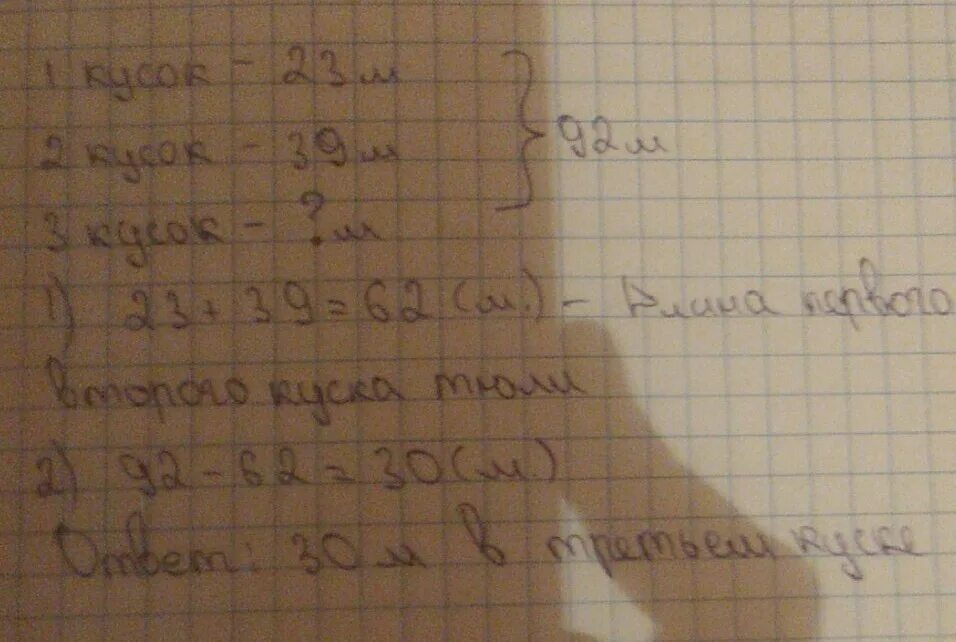 1 кусок - 23 м
2 кусок - 39 м
92 м
3 кусок - ? м
1) 23 + 39 = 62 (м.) - длина первого
второго куска тюли
2) 92 - 62 = 30 (м.)
Ответ: 30 м в третьем куске